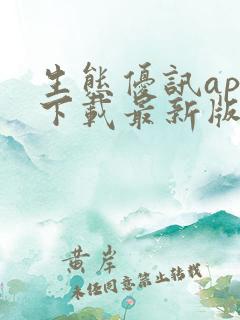 生態優訊ap
下載最新版
黃岸
未经同意禁止转载